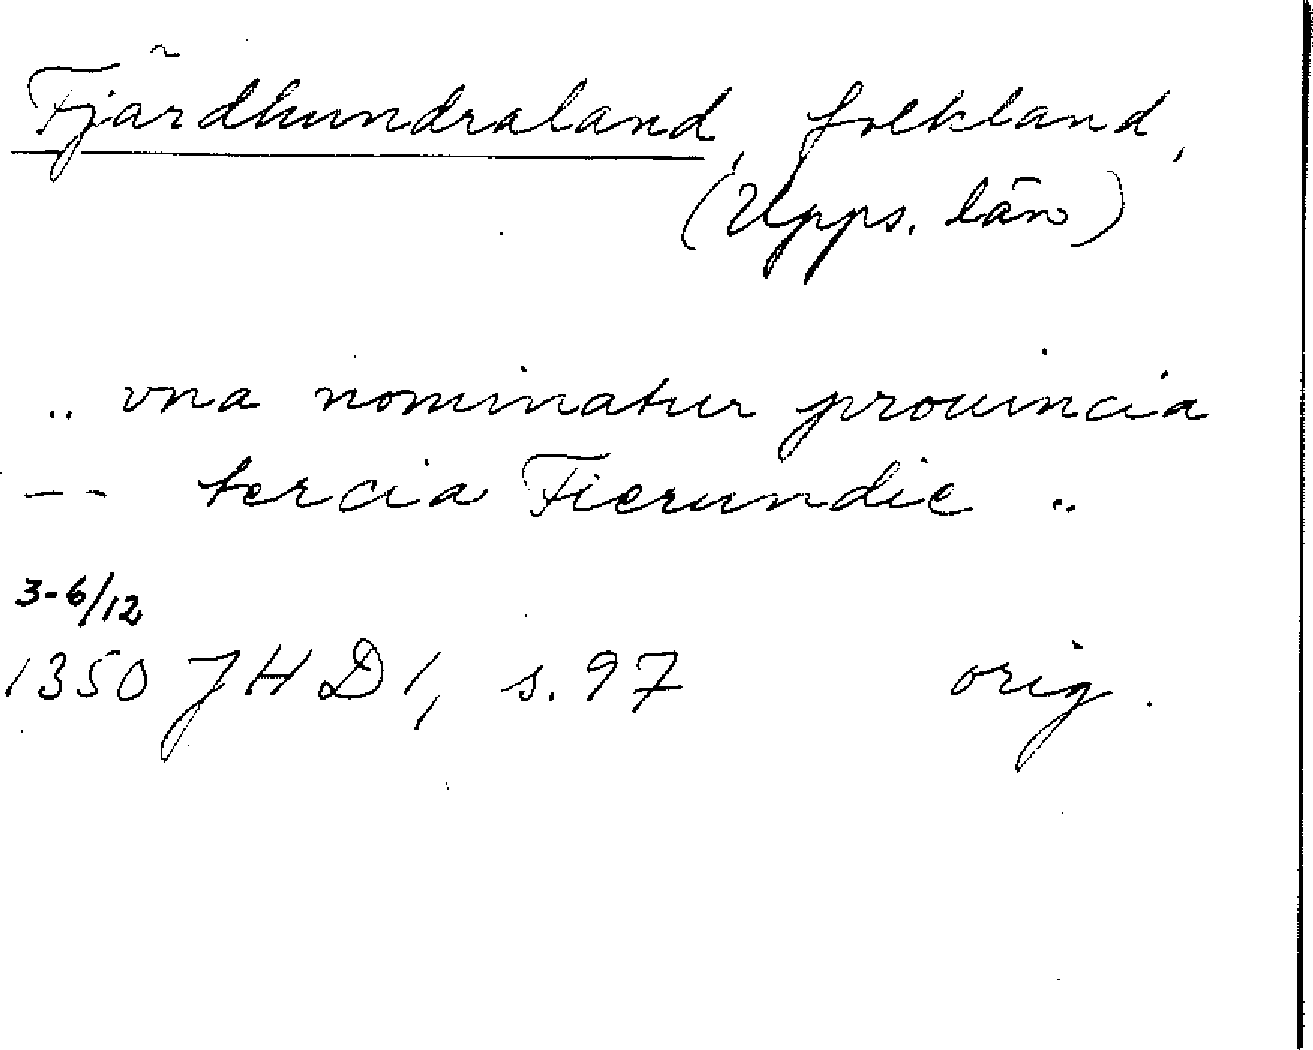 Fjärdhundraland, folkland,
(Upps. län)
.. vna nominatur prouincia
-- tercia Fierundie ..
3-6/12
1350 JHD 1, s. 97 orig.